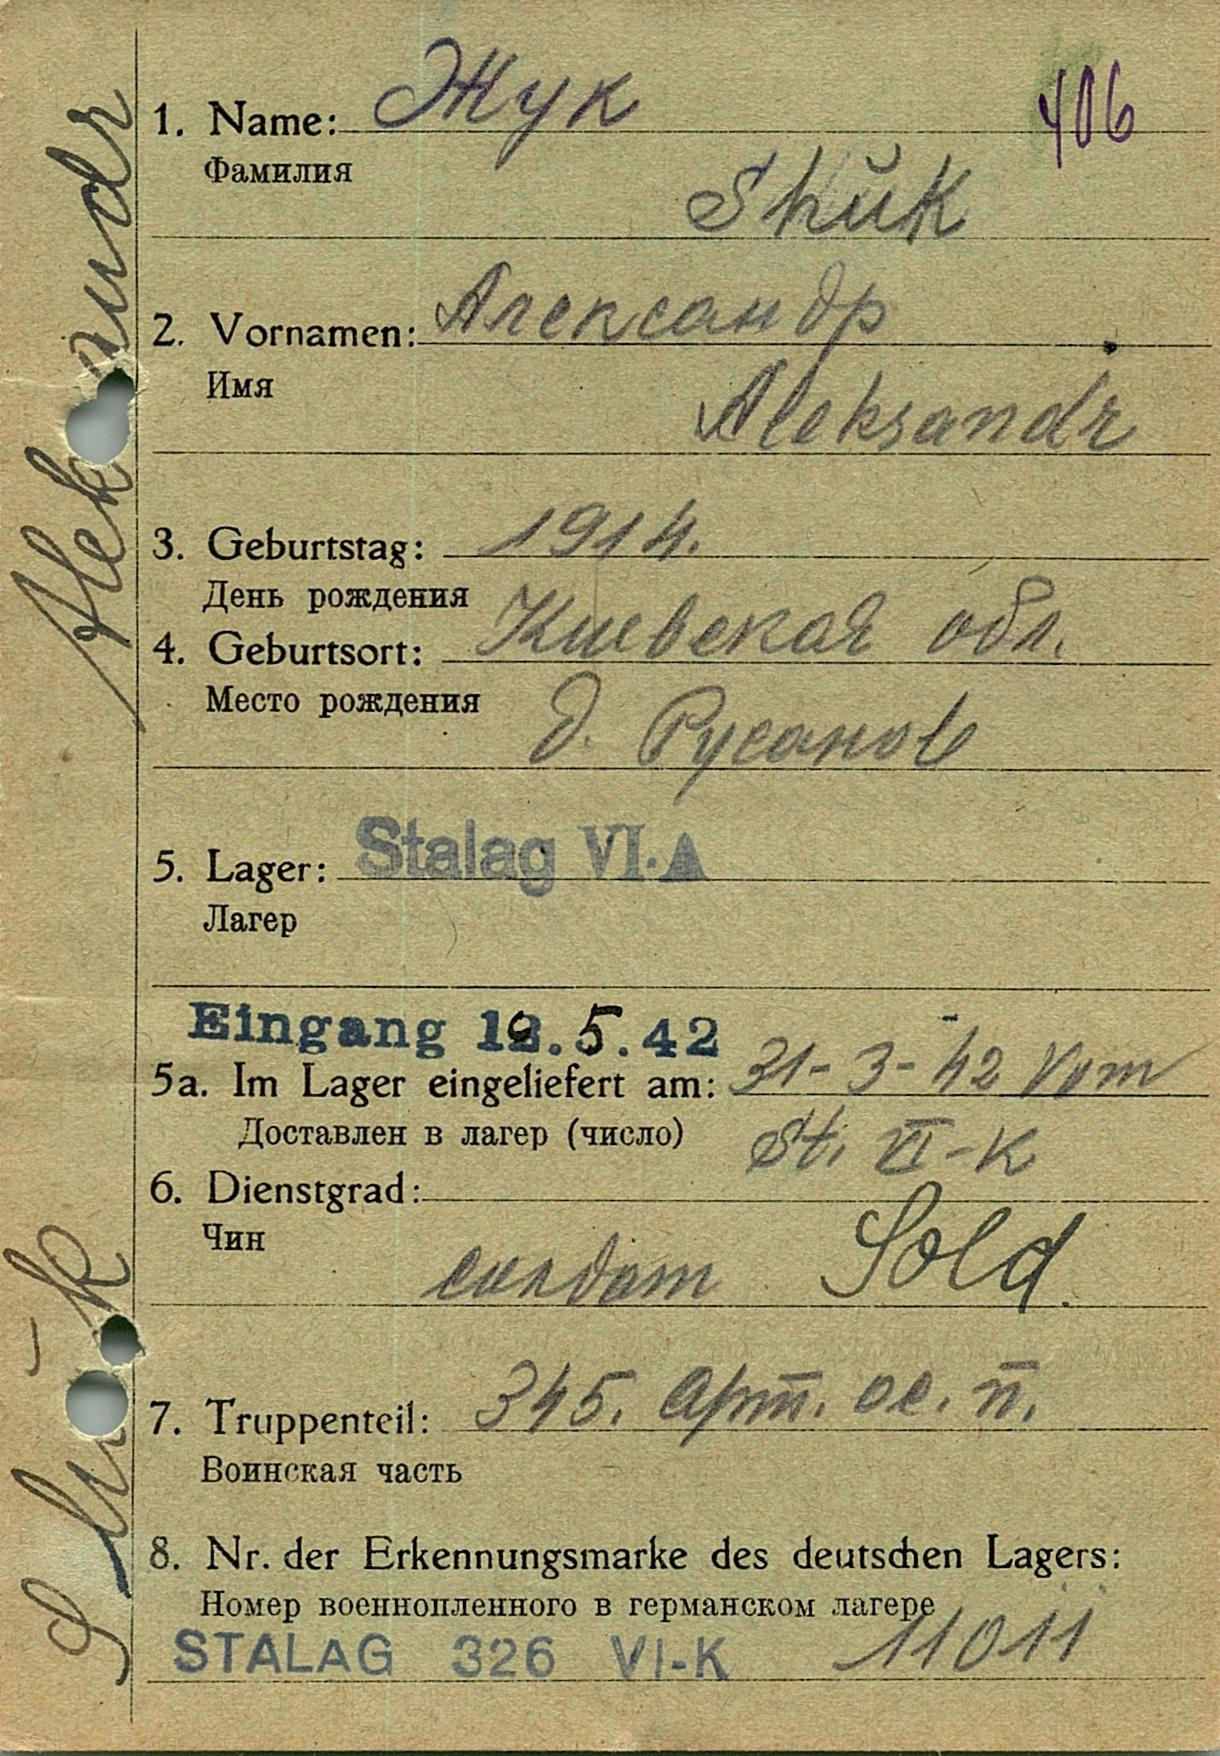 406
1. Name: Жук
Фамилия
Shŭk
2. Vornamen: Александр
Имя
Aleksandr
3. Geburtstag: 1914.
День рождения
4. Geburtsort: Киевская обл.
Место рождения
д. Русанов
5. Lager: Stalag VI-A
Лагер
Eingang 12.5.42
5a. Im Lager eingeliefert am: 31-3-42 vom
Доставлен в лагер (число) St. VI-K
6. Dienstgrad:
Чин
солдат Sold.
7. Truppenteil: 345. арт. ос. п.
Воинская часть
8. Nr. der Erkennungsmarke des deutschen Lagers:
Номер военнопленного в германском лагере
STALAG 326 VI-K 11011